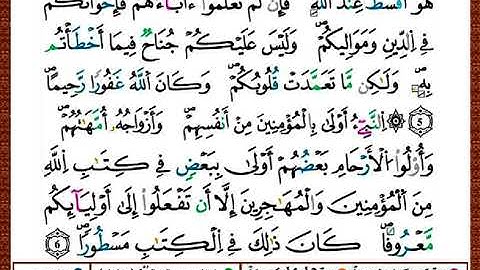 هُوَ أَقْسَطُ عِندَ اللَّهِ فَإِن لَّمْ تَعْلَمُوا ءَابَآءَهُمْ فَإِخْوَانُكُمْ
فِي الدِّينِ وَمَوَالِيكُمْ وَلَيْسَ عَلَيْكُمْ جُنَاحٌ فِيمَا أَخْطَأْتُم
بِهِ وَلَـٰكِن مَّا تَعَمَّدَتْ قُلُوبُكُمْ وَكَانَ اللَّهُ غَفُورًا رَّحِيمًا
5 ۞ النَّبِيُّ أَوْلَىٰ بِالْمُؤْمِنِينَ مِنْ أَنفُسِهِمْ وَأَزْوَاجُهُ أُمَّهَاتُهُمْ
وَأُوْلُوا الْأَرْحَامِ بَعْضُهُمْ أَوْلَىٰ بِبَعْضٍ فِي كِتَابِ اللَّهِ
مِنَ الْمُؤْمِنِينَ وَالْمُهَاجِرِينَ إِلَّا أَن تَفْعَلُوا إِلَىٰ أَوْلِيَآئِكُم
مَّعْرُوفًا كَانَ ذَٰلِكَ فِي الْكِتَابِ مَسْطُورًا 6